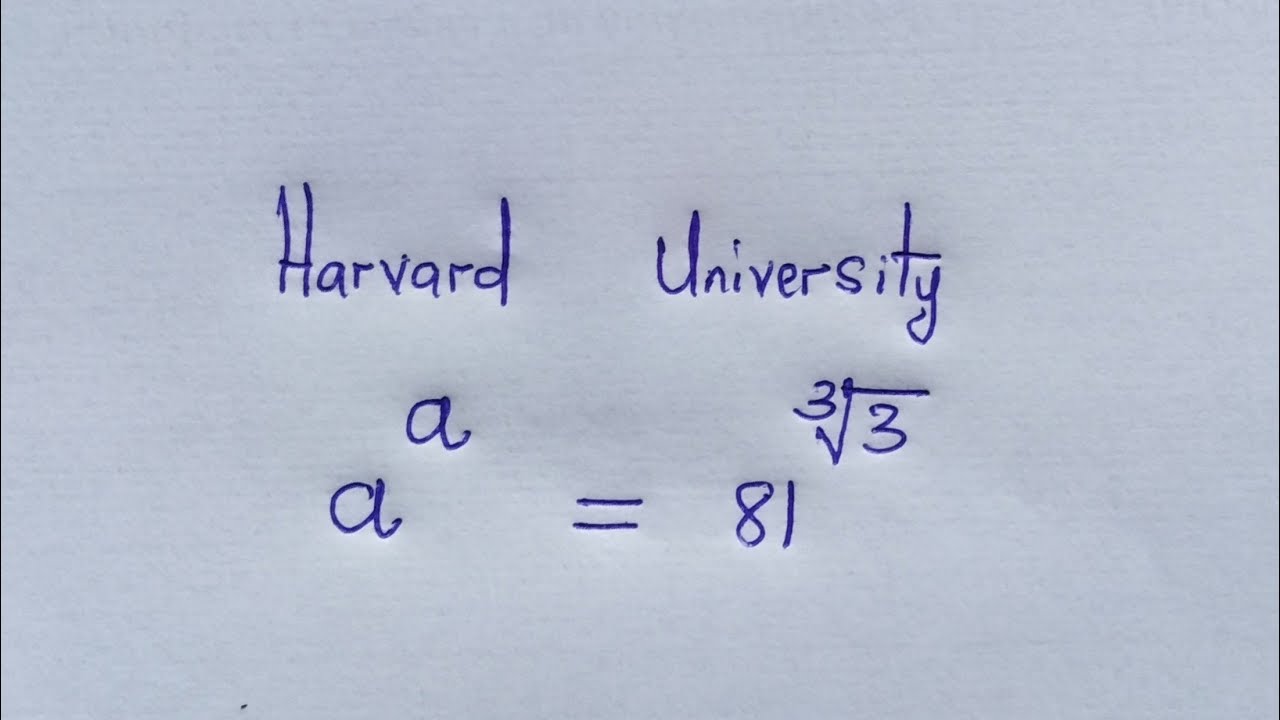 Harvard University
a^a = 81^∛3